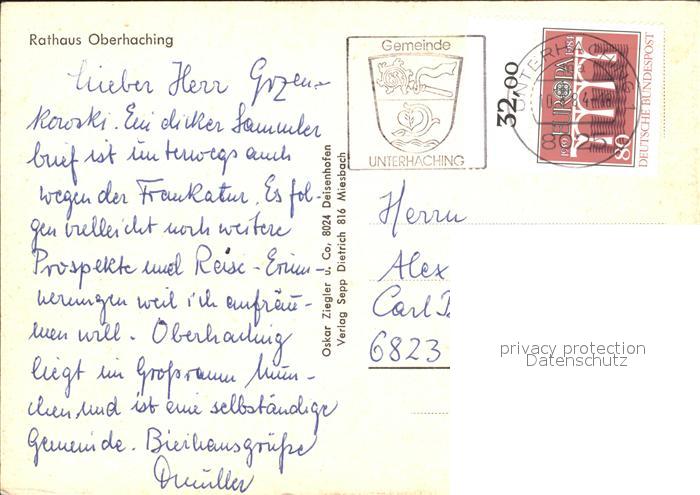 Rathaus Oberhaching
Lieber Herr Gozen-
kowski. Ein dicker Sammler
brief ist unterwegs auch
wegen der Frankatur. Es fol-
gen vielleicht noch weitere
Prospekte und Reise-Erinn-
erungen weil ich aufräu-
men will. Oberhaching
liegt im Großraum Mün-
chen und ist eine selbständige
Gemeinde.
Oskar Ziegler u. Co, 8024 Deisenhofen
Verlag Sepp Dietrich 816 Miesbach
Gemeinde
UNTERHACHING
32,00
UNTERHACHING
EUROPA
1959 1984
80
DEUTSCHE BUNDESPOST
Herrn
Alex
Carl
6823
privacy protection
Datenschutz